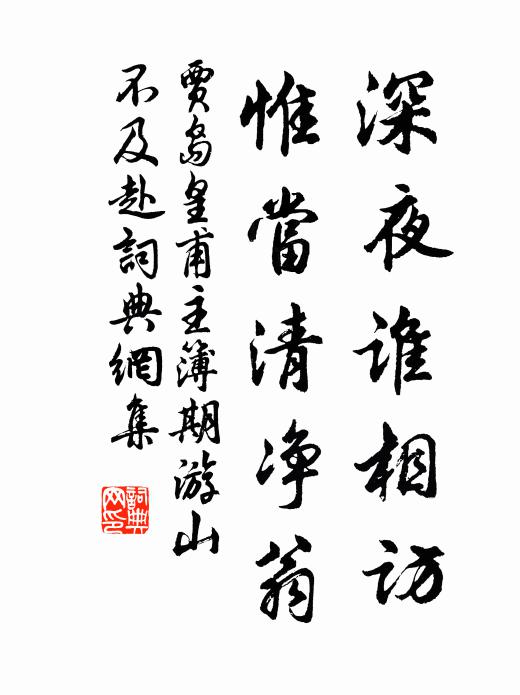 深夜誰相訪
惟當清淨翁
賈島皇甫主簿期游山
不及赴詞典網集
詞典
网印